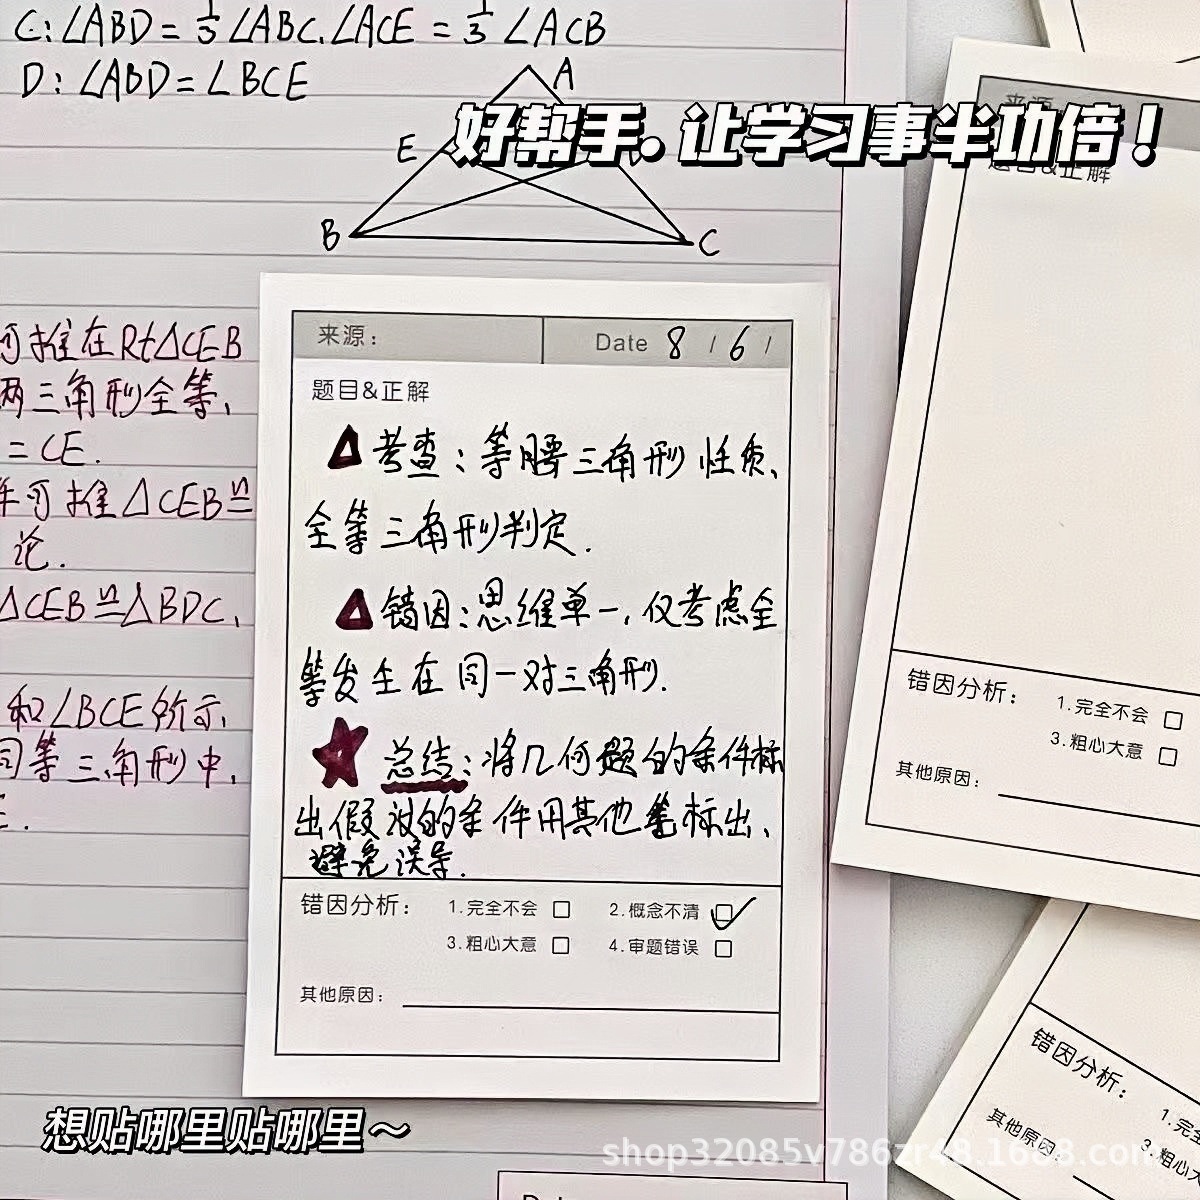 C:∠ABD=⅓∠ABC.∠ACE=⅓∠ACB
D:∠ABD=∠BCE
A
E
B
C
好帮手.让学习事半功倍!
来源:
题目&正解
可推在Rt△CEB
两三角形全等、
=CE.
件可推△CEB≌
论.
△CEB≌△BDC、
和∠BCE所示、
同等三角形中、
E.
来源:
Date 8 / 6 /
题目&正解
△考查:等腰三角形性质、
全等三角形判定.
△错因:思维单一,仅考虑全
等发生在同一对三角形.
★总结:将几何题的条件标
出假设的条件用其他笔标出、
避免误导.
错因分析: 1.完全不会 □ 2.概念不清 ☑
3.粗心大意 □ 4.审题错误 □
其他原因:
错因分析: 1.完全不会 □
3.粗心大意 □
其他原因:
错因分析:
1.完全
其他原因
3.粗
想贴哪里贴哪里~
shop32085v786zr48.1688.com